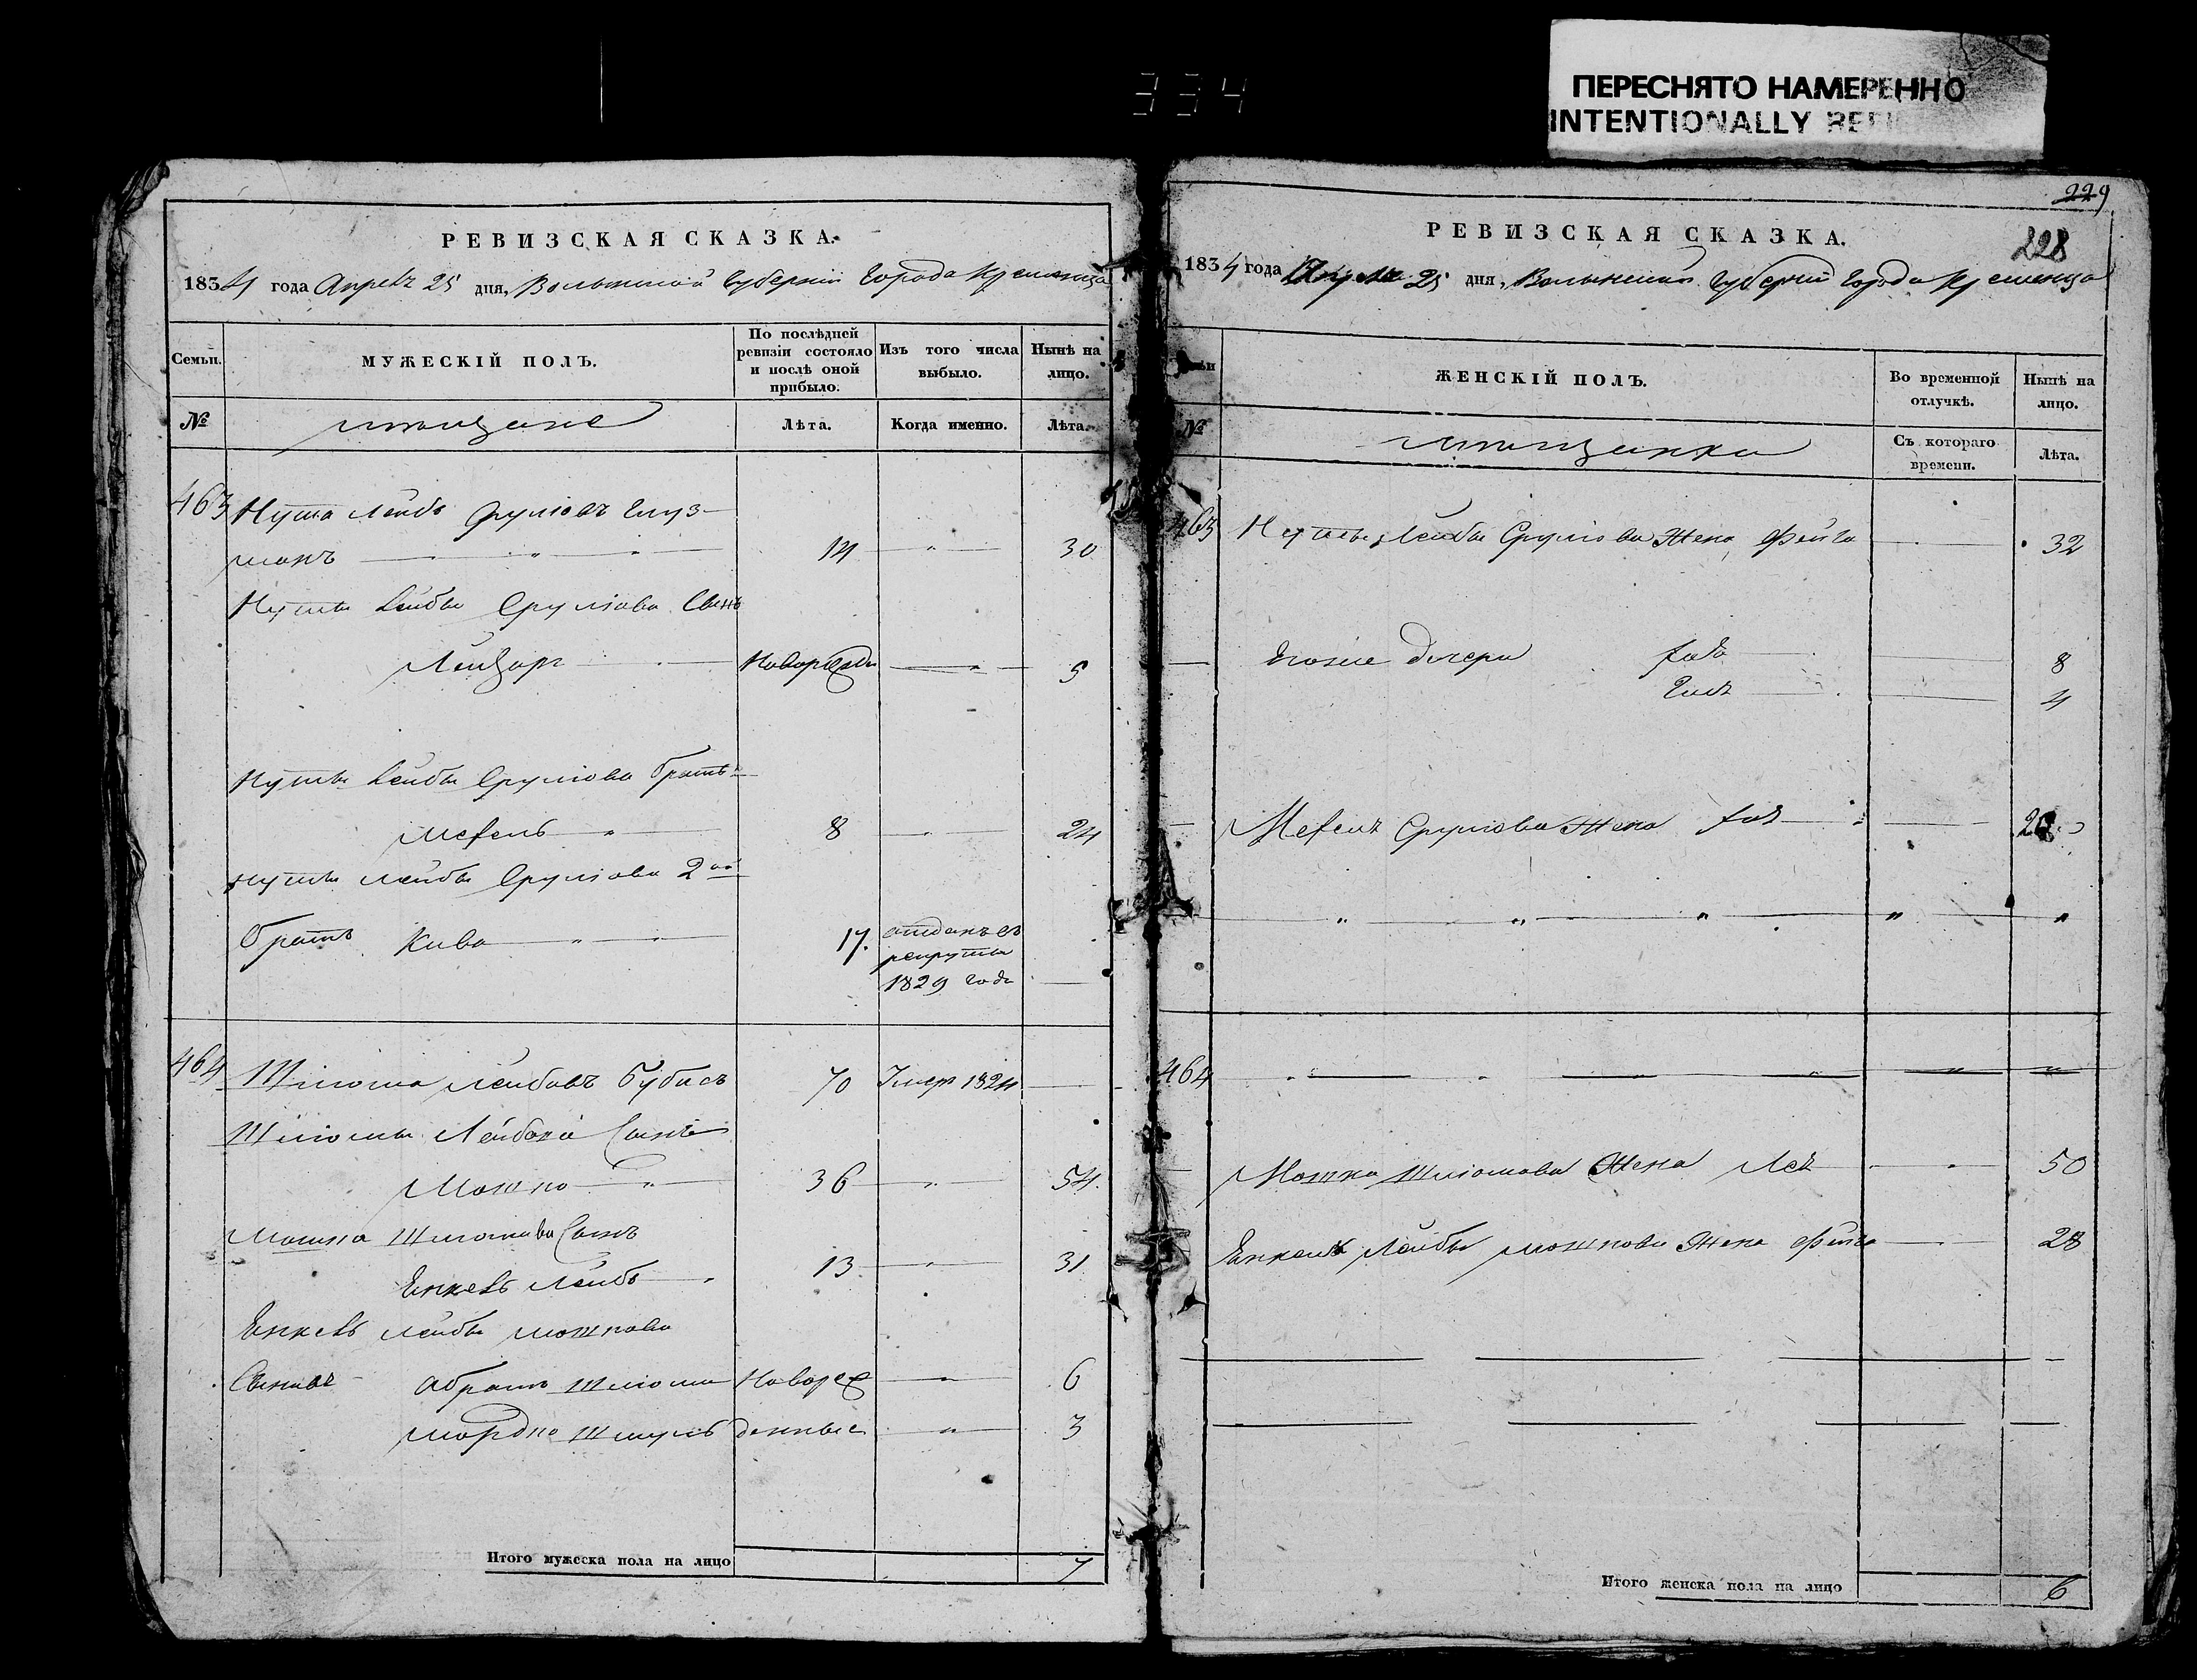 334
ПЕРЕСНЯТО НАМЕРЕННО
INTENTIONALLY
РЕВИЗСКАЯ СКАЗКА.
1834 года Апреля 25 дня, Волынской Губернии Города Кременца
Семьи.
МУЖЕСКІЙ ПОЛЪ.
По послѣдней ревизіи состояло и послѣ оной прибыло.
Изъ того числа выбыло.
Нынѣ на лицо.
№
мещане
Лѣта.
Когда именно.
Лѣта.
463 Нута Лейбъ Срулiовъ Глуз-
манъ 14 30
Нуты Лейбы Срулiова Сынъ
Лейзоръ Новорожден 5
Нуты Лейбы Срулiова братъ
8 24
Нуты Лейбы Срулiова 2ой
братъ Кива 17. отданъ въ
рекруты
1829 года
464 Шлiома Лейбовъ 70 Умер 1824
Шлiомы Лейбова Сынъ
Мошко 36 54
Мошка Шлiомова Сынъ
Енкель Лейбъ 13 31
Енкель Лейбы Мошкова
Сыновя Абрамъ Шлiома Новорож 6
Мордко Шмуль денные 3
Итого мужеска пола на лицо 7
229
228
РЕВИЗСКАЯ СКАЗКА.
1834 года Апреля 25 дня, Волынской Губернии Города Кременца
ЖЕНСКІЙ ПОЛЪ.
Во временной отлучкѣ.
Нынѣ на лицо.
№
мещанки
Съ котораго времени.
Лѣта.
463 Нуты Лейбы Срулiова Жена Фейга 32
Его дочери 8
4
Срулiова Жена
464
Мошка Шлiомова Жена Лея 50
Енкеля Лейбы Мошкова Жена Фейга 28
Итого женска пола на лицо 6